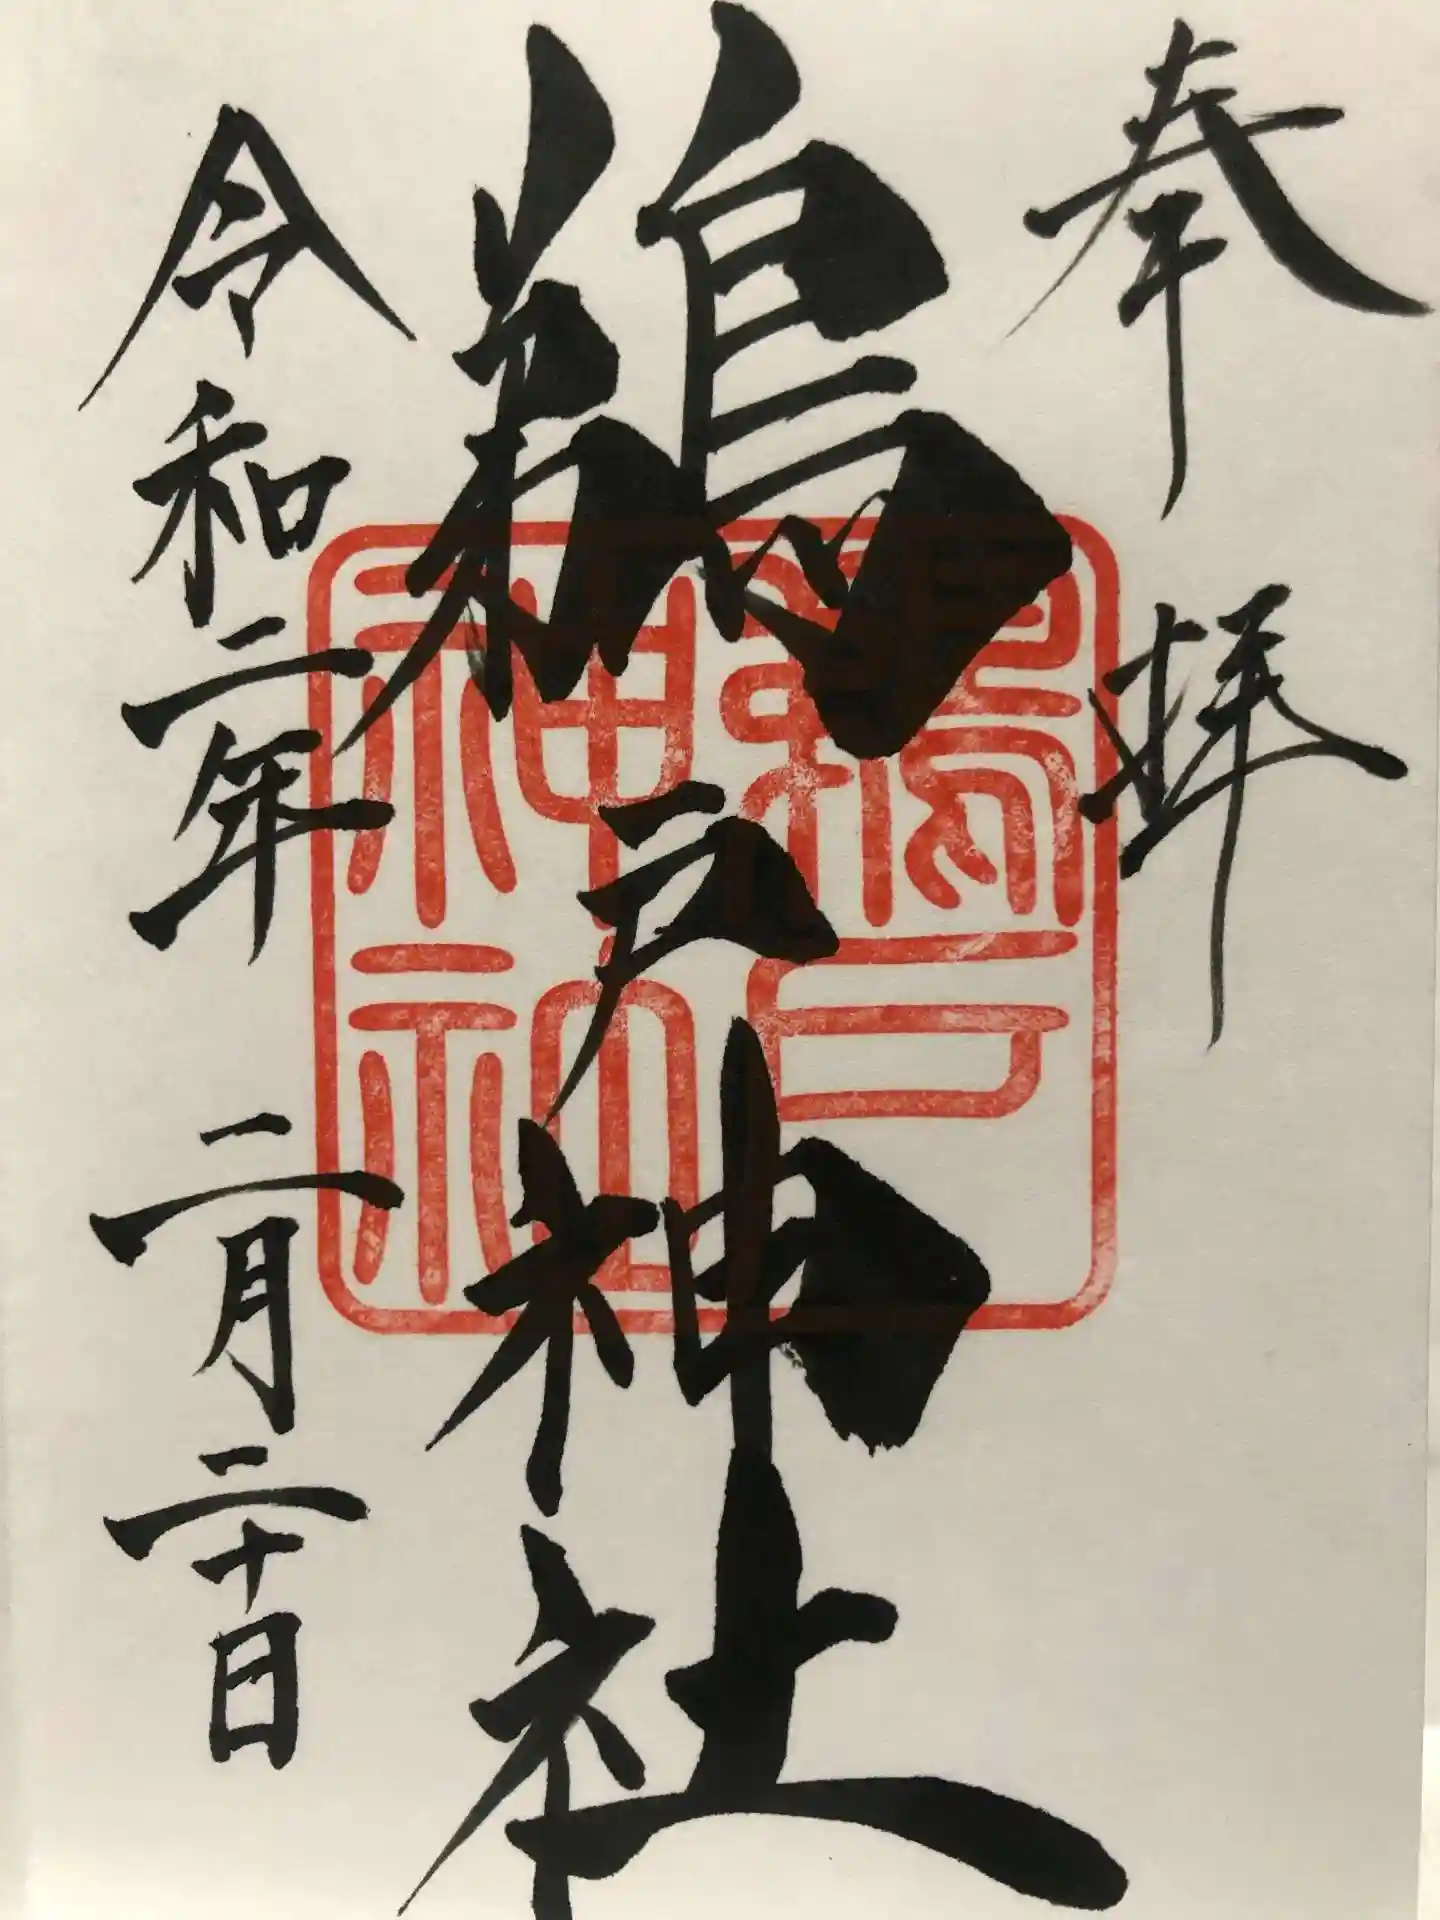 奉拝
鵜戸神社
令和二年 二月二十日
鵜戸
神社